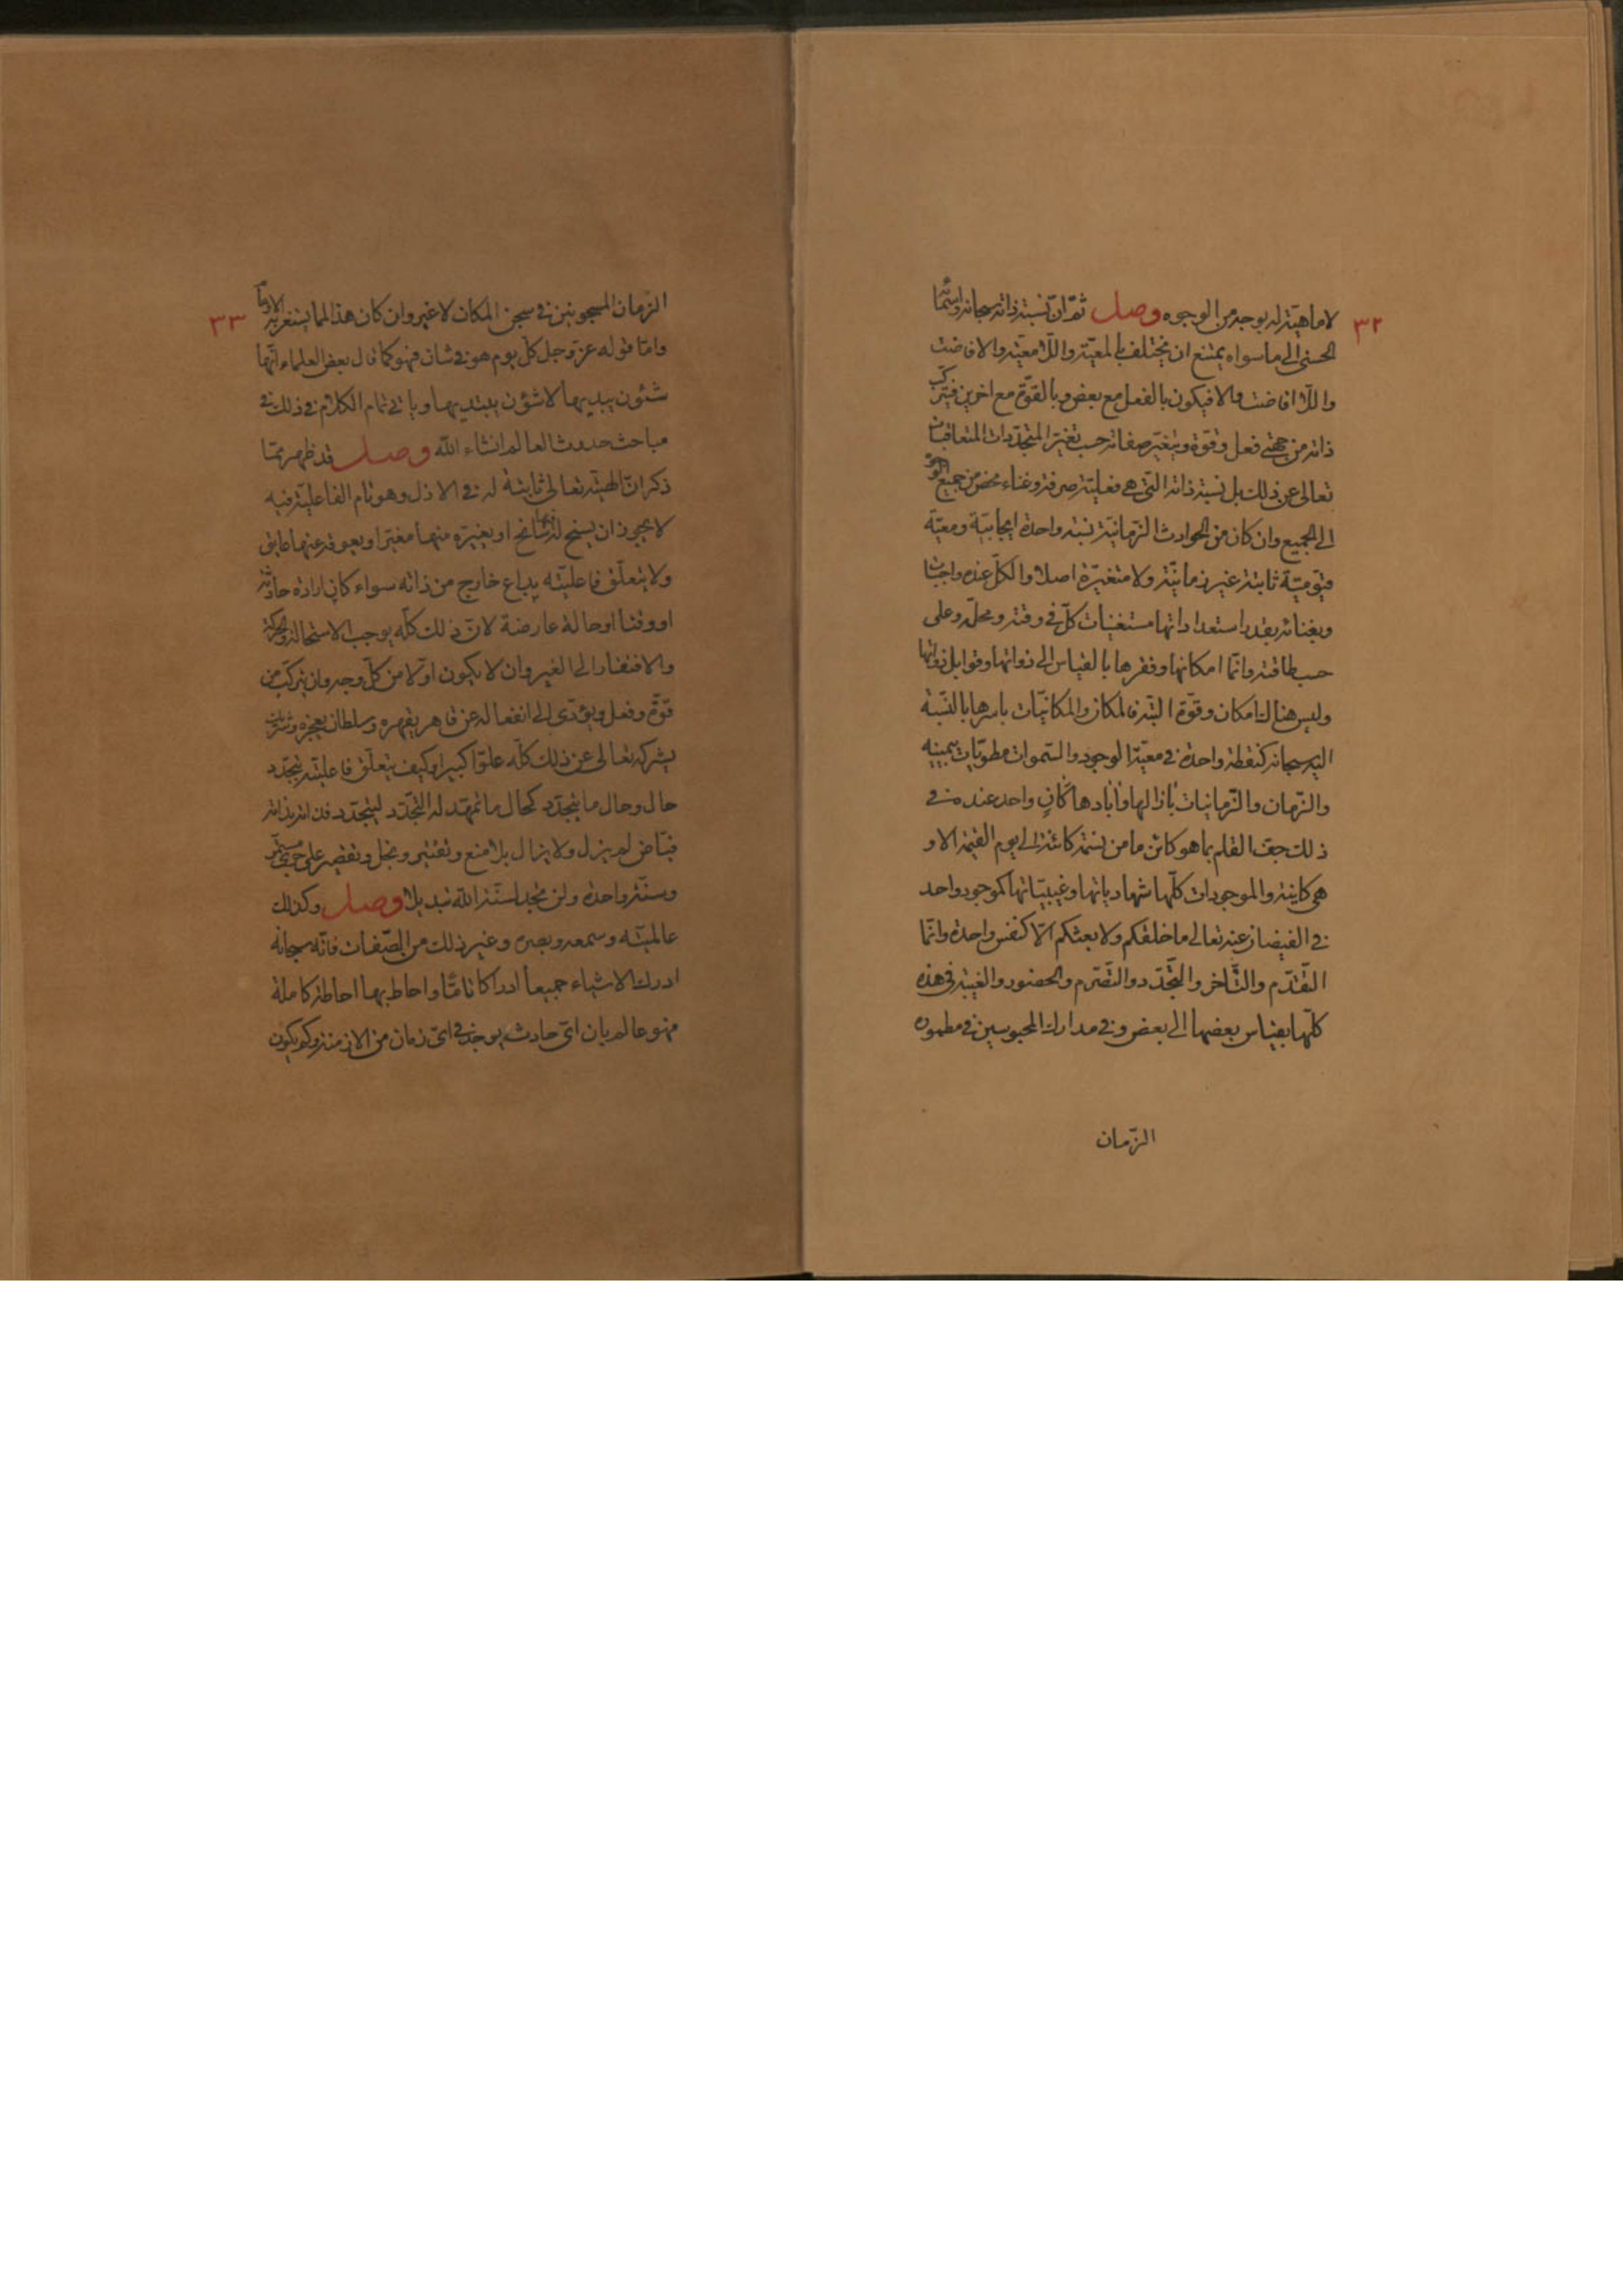 ٣٢
لا ماهية له بوجه من الوجوه وصل ثم ان نسبة ذاته سبحانه واسمائه
الحسنى الى ما سواه يمتنع ان يختلف بالمعية واللا معية والافاضة
واللا افاضة والا فيكون بالفعل مع بعض وبالقوة مع اخرين فيتركب
ذاته من جهتي فعل وقوة ويتغير صفاته حسب تغير المتجددات المتعاقبات
تعالى عن ذلك بل نسبة ذاته التي هي فعلية صرفة وغناء محض من جميع الوجوه
الى الجميع وان كان من الحوادث الزمانية نسبة واحدة ايجابية ومعية
قيومية ثابتة غير زمانية ولا متغيرة اصلا والكل عنده واجبات
وبغنائه بقدر استعداداتها مستغنيات كل في وقته ومحله وعلى
حسب طاقته وانما امكانها وفقرها بالقياس الى ذواتها وقوابل ذواتها
وليس هناك امكان وقوة البتة فالمكان والمكانيات باسرها بالنسبة
اليه سبحانه كنقطة واحدة في معية الوجود والسموات مطويات بيمينه
والزمان والزمانيات بازالها وابادها كان واحد عنده في
ذلك جف القلم بما هو كائن ما من نسمة كائنة الى يوم القيمة الا و
هي كاينة والموجودات كلها شهادياتها وغيبياتها كموجود واحد
في الفيضان عنه تعالى ما خلقكم ولا بعثكم الا كنفس واحدة وانما
التقدم والتاخر والتجدد والتصرم والحضور والغيبة في هذه
كلها بقياس بعضها الى بعض وفي مدارك المحبوسين في مطمورة
الزمان
٣٣
الزمان المسجونين في سجن المكان لا غير وان كان هذا لمما يستغربه الاوهام
واما قوله عز وجل كل يوم هو في شان فهو كما قال بعض العلماء انها
شئون يبديها لا شؤن يبتديها وياتي تمام الكلام في ذلك في
مباحث حدوث العالم انشاء الله وصل قد ظهر مما
ذكر ان الهيته تعالى ثابتة له في الازل وهو تام الفاعلية فيه
لا يجوز ان يسنح له فيها سانح او يغيره منها مغير او يعوقه عنها عايق
ولا يتعلق فاعليته بداع خارج من ذاته سواء كان ارادة حادثة
او وقتا او حالة عارضة لان ذلك كله يوجب الاستحالة والحركة
والافتقار الى الغير وان لا يكون اولا من كل وجه وان يتركب من
قوة وفعل ويؤدي الى انفعاله عن قاهر يقهره وسلطان يعجزه وشريك
يشركه تعالى عن ذلك كله علوا كبيرا وكيف يتعلق فاعليته بتجدد
حال وحال ما يتجدد كحال ما تمهد له التجدد ليتجدد فذاته بذاته
فياض لم يزل ولا يزال بلا منع وتقتير وبخل وتقصير على مستمر
وسنة واحدة ولن تجد لسنة الله تبديلا وصل وكذلك
عالميته وسمعه وبصره وغير ذلك من الصفات فانه سبحانه
ادرك الاشياء جميعا ادراكا تاما واحاط بها احاطة كاملة
فهو عالم بان اي حادث يوجد في اي زمان من الازمنة وكم يكون